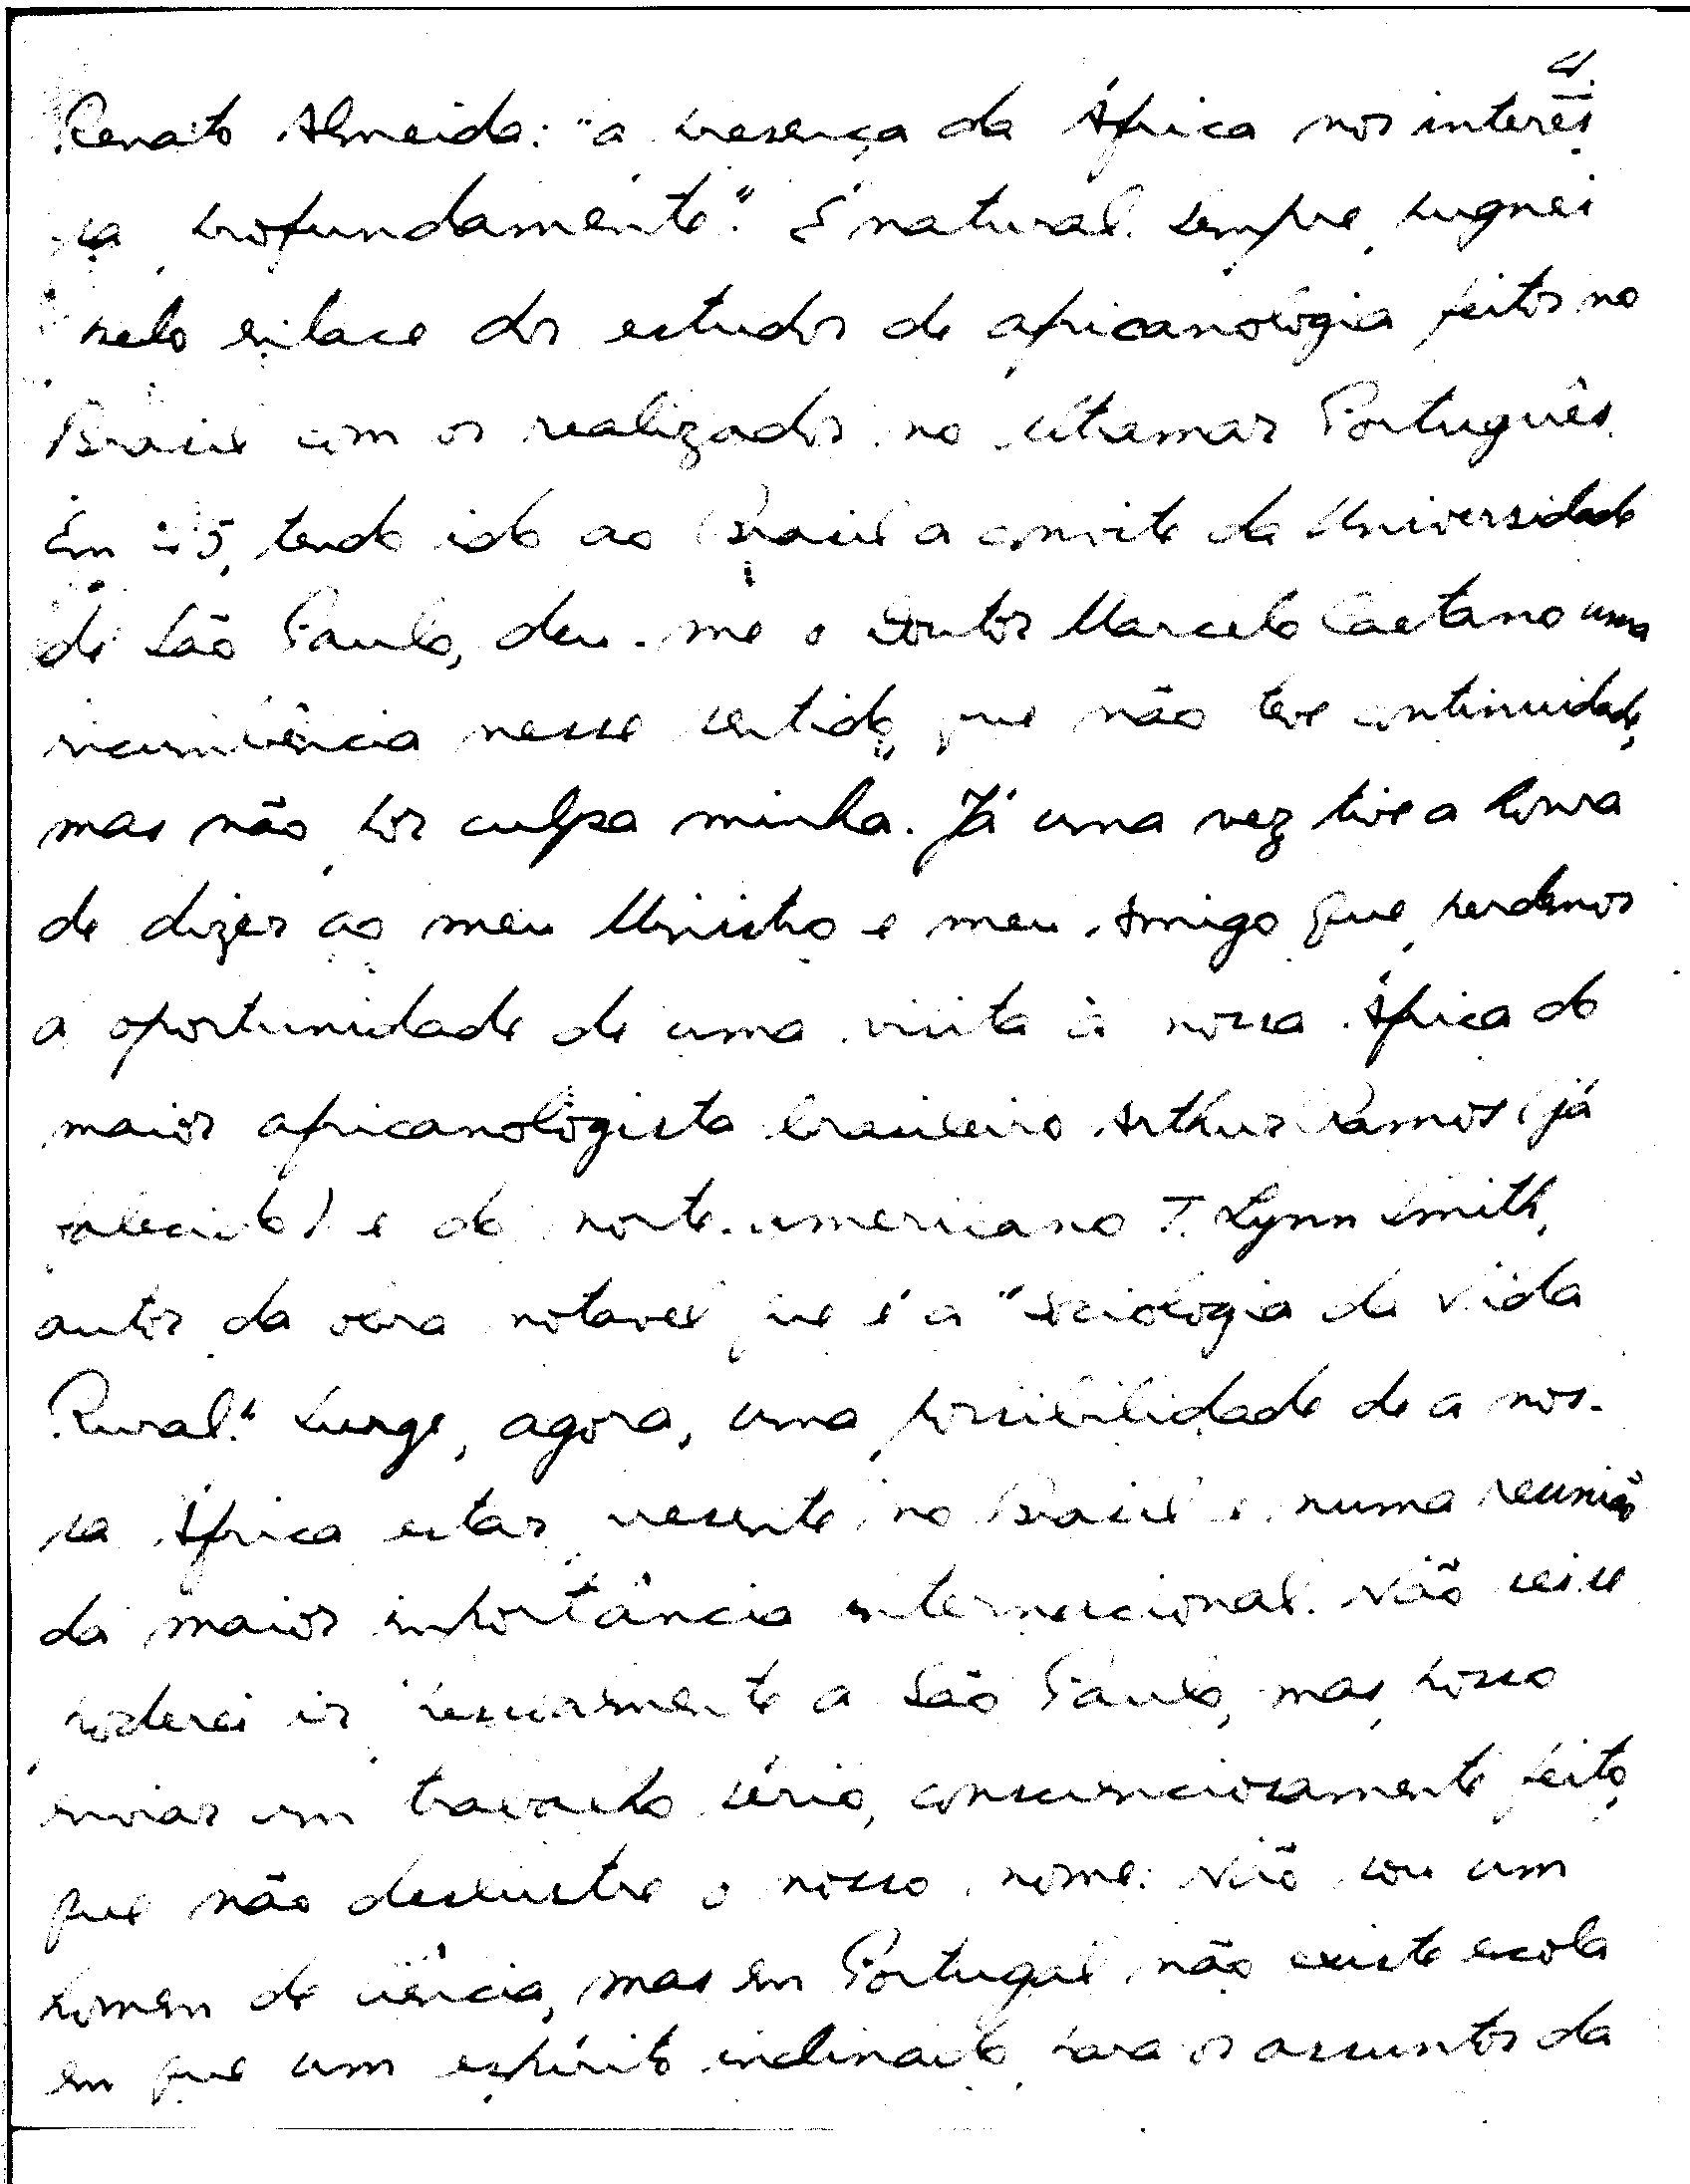 4.
Renato Almeida: "a presença da África nos interes
sa profundamente". É natural. Sempre pugnei
pelo enlace dos estudos de africanologia feitos no
Brasil com os realizados no Ultramar Português.
Em 45, tendo ido ao Brasil a convite da Universidade
de São Paulo, deu-me o Doutor Marcelo Caetano uma
incumbência nesse sentido, que não teve continuidade,
mas não por culpa minha. Já uma vez tive a honra
de dizer ao meu Ministro e meu Amigo que perdemos
a oportunidade de uma visita à nossa África do
maior africanologista brasileiro Arthur Ramos (já
falecido) e do norte-americano T. Lynn Smith,
autor da obra notavel que é a "Sociologia da Vida
Rural". Surge, agora, uma possibilidade de a nos-
sa África estar presente no Brasil e numa reunião
da maior importância internacional. Não sei se
poderei ir pessoalmente a São Paulo, mas posso
enviar um trabalho sério, conscienciosamente feito,
que não deslustre o nosso nome. Não sou um
homem de ciência, mas em Portugal não existe escola
em que um espírito inclinado para os assuntos da